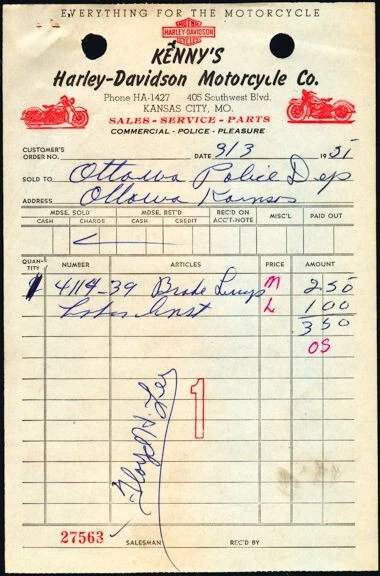 EVERYTHING FOR THE MOTORCYCLE
HARLEY-DAVIDSON
KENNY'S
Harley-Davidson Motorcycle Co.
Phone HA-1427 405 Southwest Blvd.
KANSAS CITY, MO.
SALES - SERVICE - PARTS
COMMERCIAL - POLICE - PLEASURE
CUSTOMER'S ORDER NO. DATE 9/3 1951
SOLD TO Ottawa Police Dep
ADDRESS Ottowa Kansas
MDSE. SOLD MDSE. RET'D REC'D ON ACC'T-NOTE MISC'L PAID OUT
CASH CHARGE CASH CREDIT
QUANTITY NUMBER ARTICLES PRICE AMOUNT
1 4114-39 Brake M 2 50
Labor Inst L 1 00
3 50
OS
Floyd H.
1
27563 SALESMAN REC'D BY